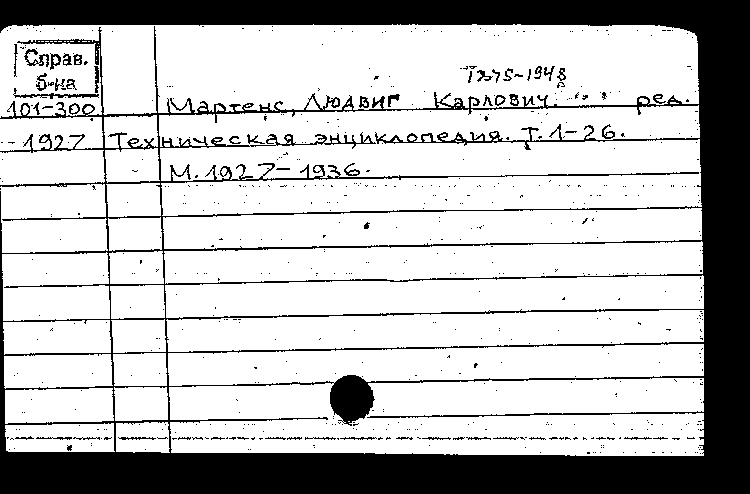 Справ.
б-ка
1875-1948
101-300 Мартенс, Людвиг Карлович. ред.
-1927 Техническая энциклопедия. Т. 1-26.
М. 1927-1936.